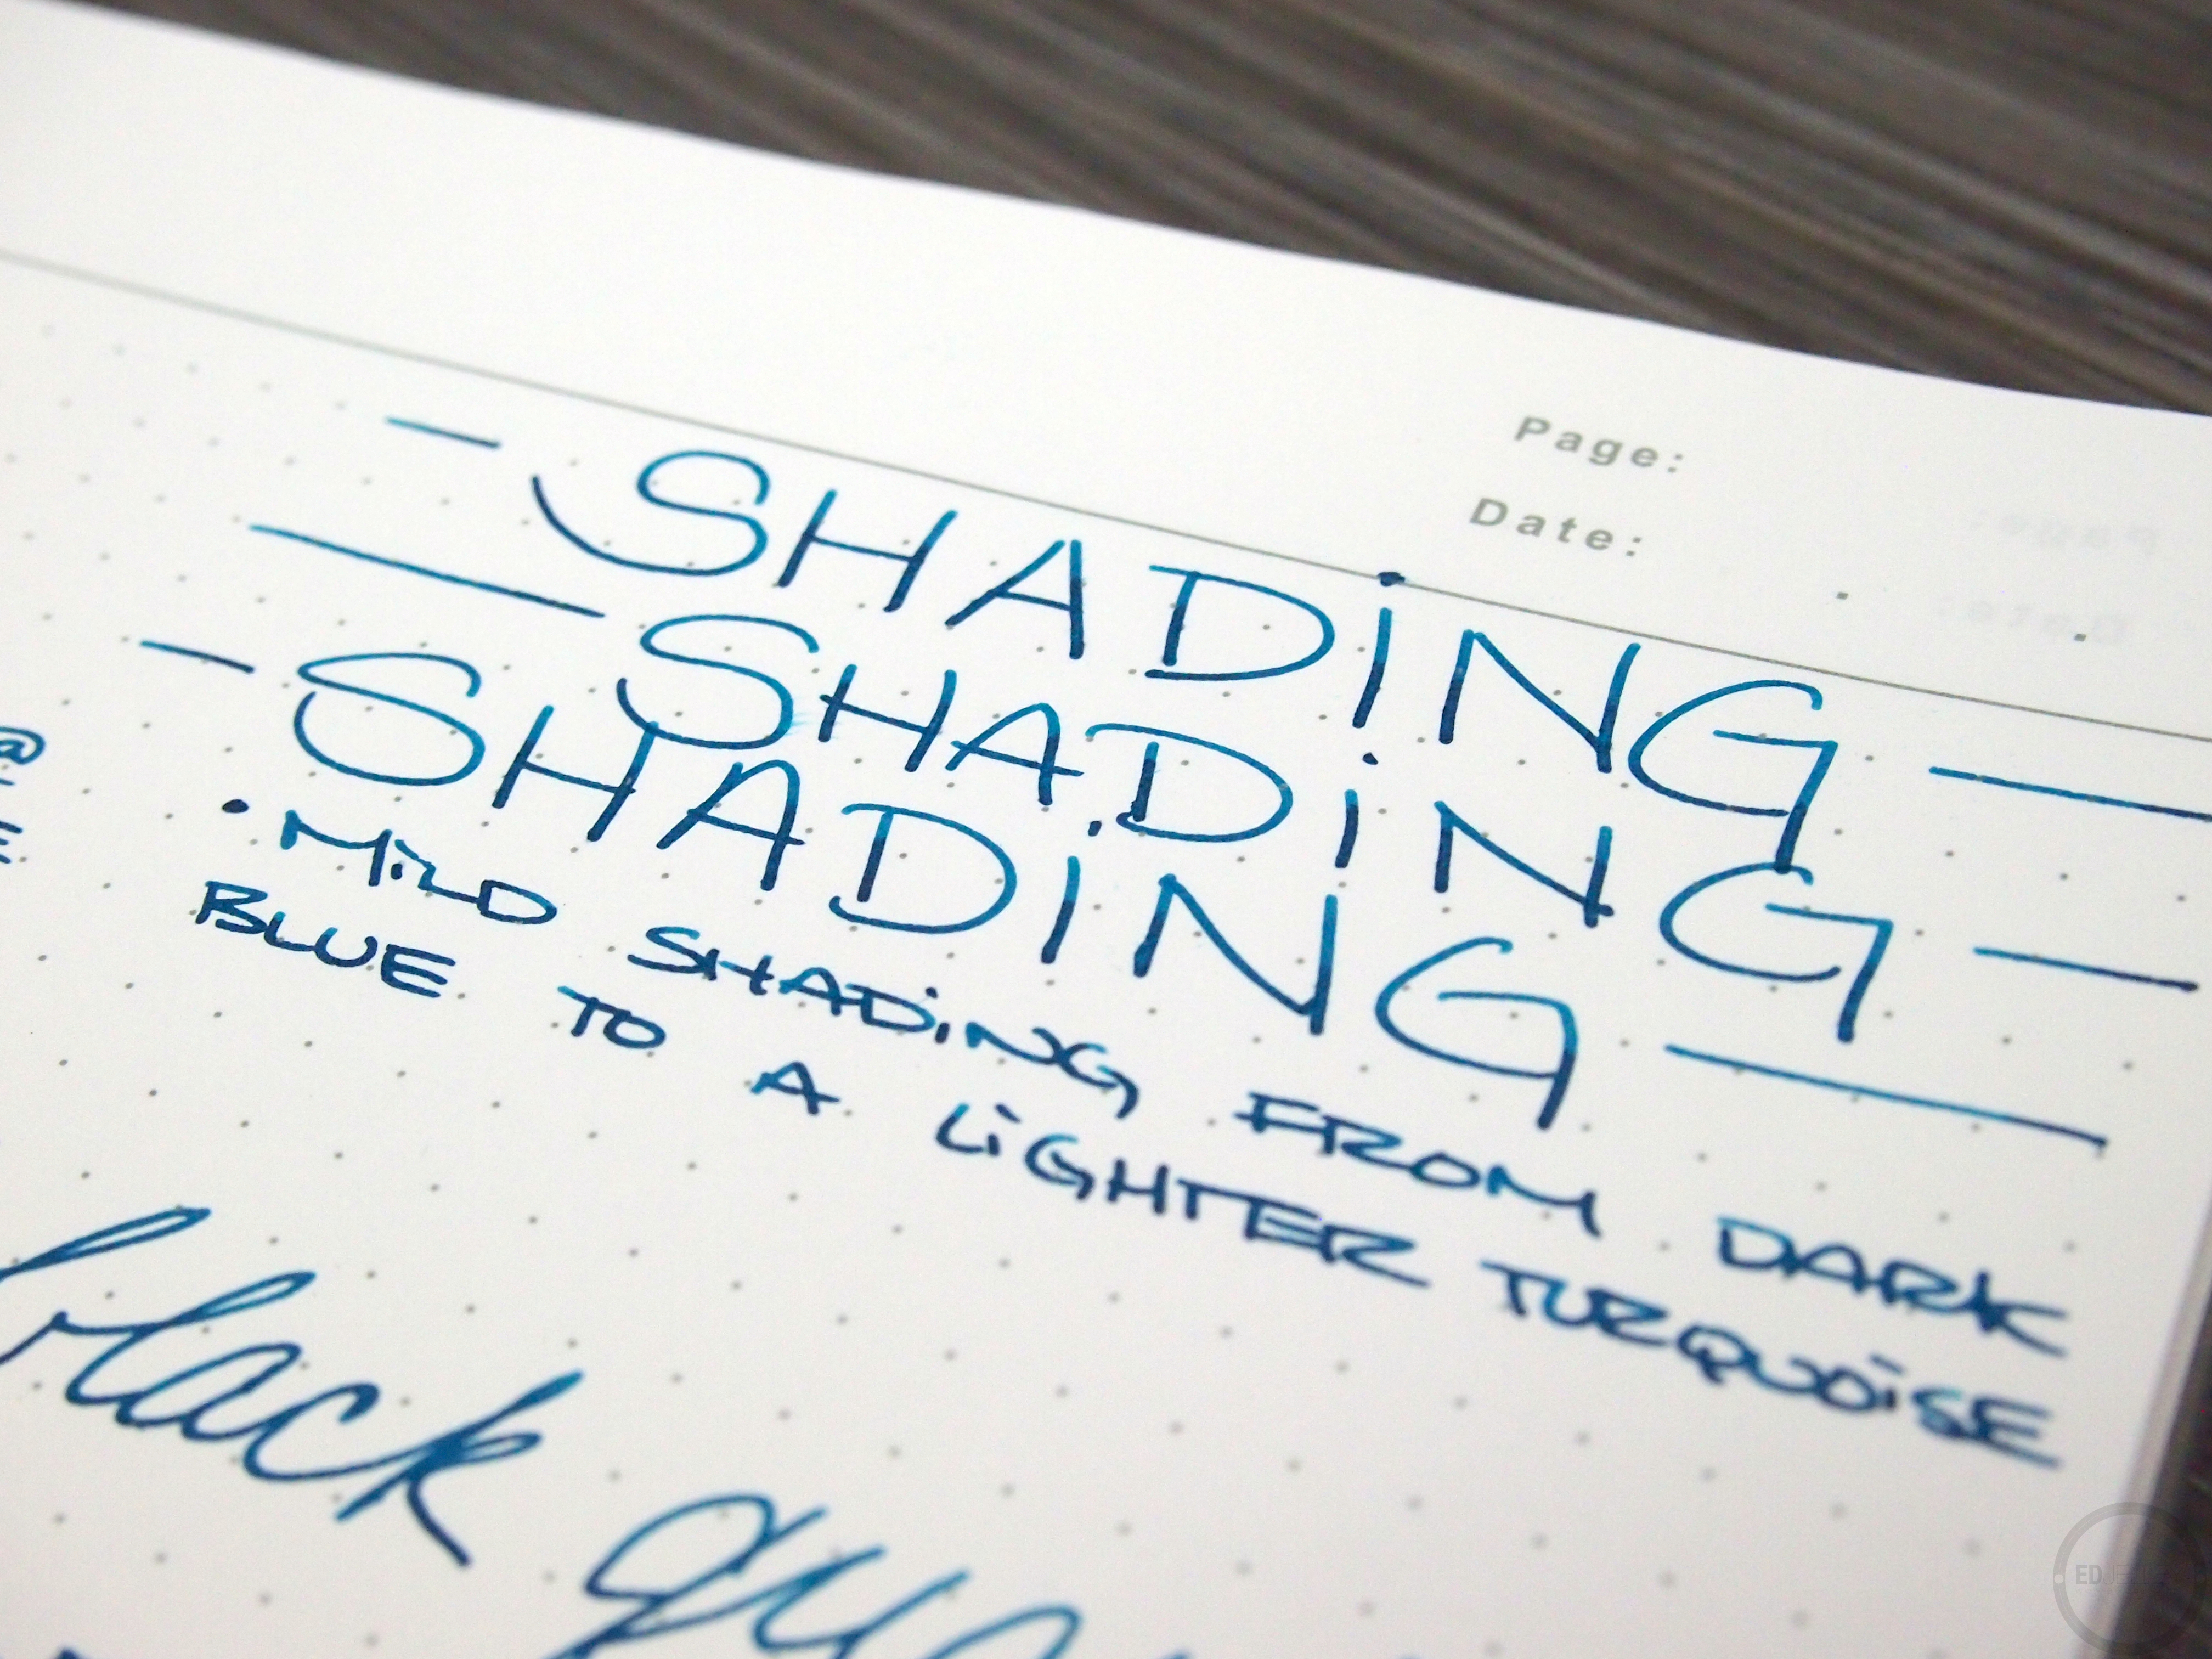 Page:
Date:
— SHADiNG —
— SHADiNG —
— SHADiNG —
@
E
• MiLD SHADiNG FROM DARK
BLUE TO A LiGHTER TURQUOiSE
black
ED